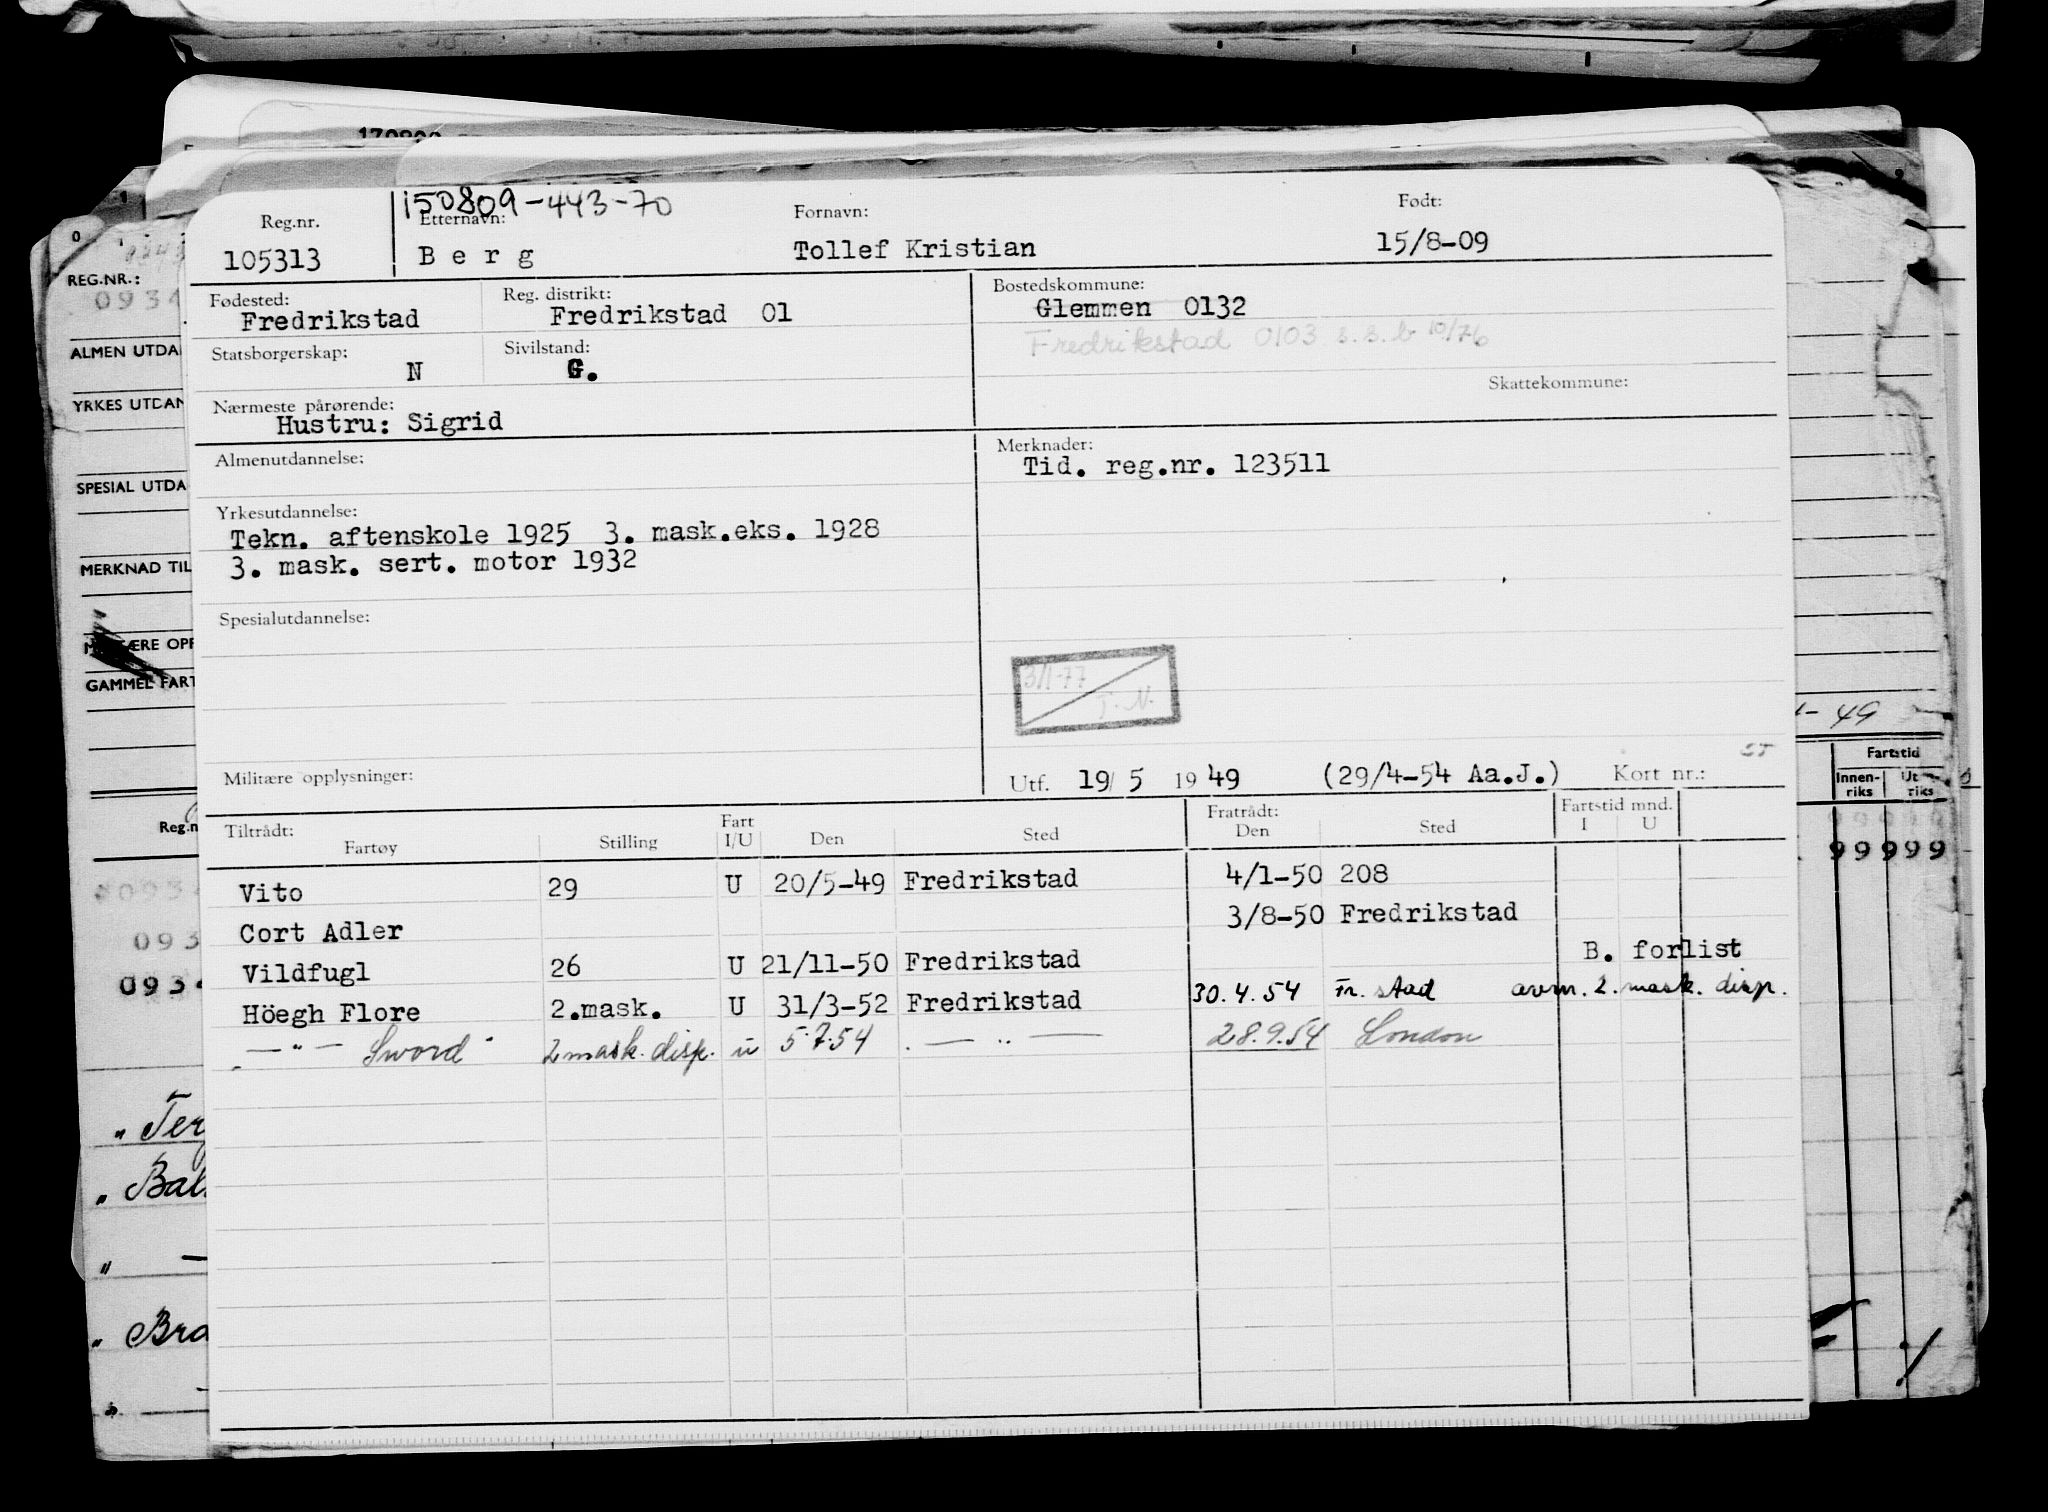 170809
150809-443-70
Reg.nr. Etternavn: Fornavn: Født:
105313 Berg Tollef Kristian 15/8-09
Fødested: Reg. distrikt: Bostedskommune:
Fredrikstad Fredrikstad 01 Glemmen 0132
Fredrikstad 0103 s.s.b 10/76
Statsborgerskap: Sivilstand:
N G.
Skattekommune:
Nærmeste pårørende:
Hustru: Sigrid
Almenutdannelse: Merknader:
Tid. reg.nr. 123511
Yrkesutdannelse:
Tekn. aftenskole 1925 3. mask.eks. 1928
3. mask. sert. motor 1932
Spesialutdannelse:
3/1-77
T.N.
Militære opplysninger: Utf. 19/5 1949 (29/4-54 Aa.J.) Kort nr.:
Tiltrådt: Fratrådt: Fartstid mnd.
Fartøy Stilling Fart I/U Den Sted Den Sted I U
Vito 29 U 20/5-49 Fredrikstad 4/1-50 208
Cort Adler 3/8-50 Fredrikstad
Vildfugl 26 U 21/11-50 Fredrikstad B. forlist
Höegh Flore 2.mask. U 31/3-52 Fredrikstad 30.4.54 Fr.stad avm. 2. mask. disp.
— " — Sword 2 mask. disp. u 5.7.54 — " — 28.9.54 London
REG.NR.:
0934
ALMEN UTDA
YRKES UTDAN
SPESIAL UTDA
MERKNAD TIL
ÆRE OPP
GAMMEL FART
Reg.n
093
0934
" Ter
" Bal
" —
" Bra
- 49
Fartstid
Innen-riks Ut riks
99999